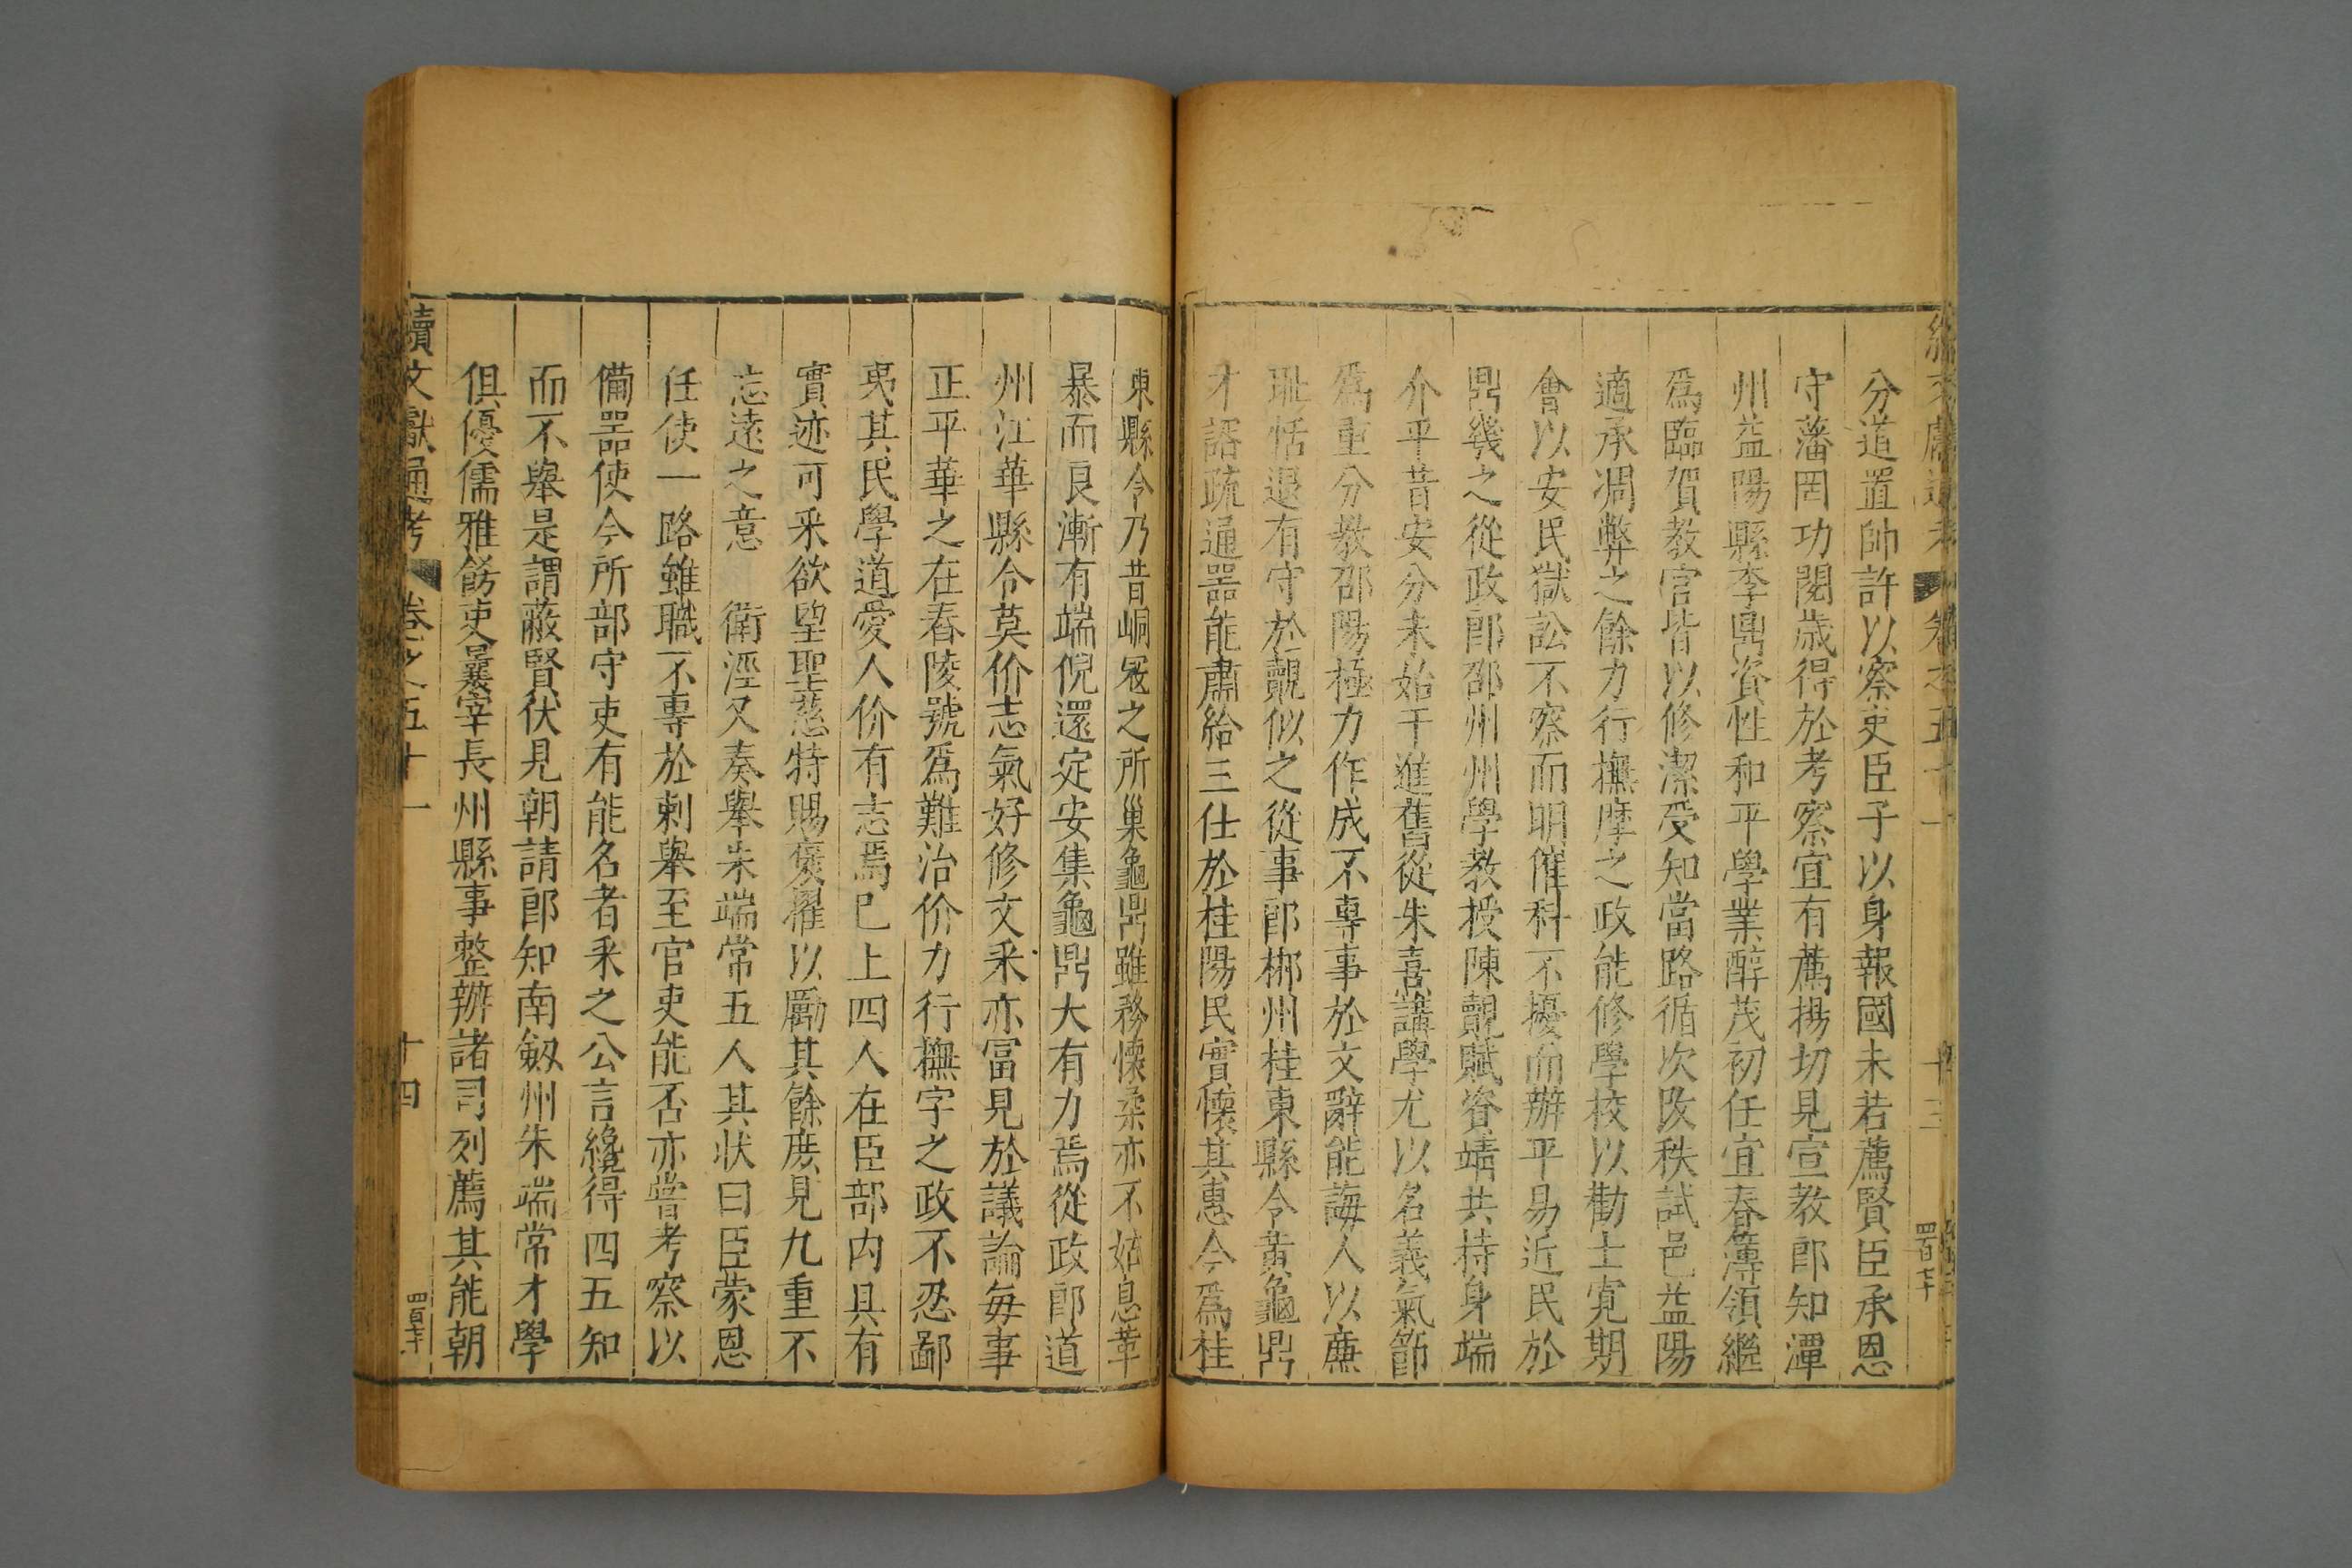 續文獻通考 卷之五十一 十三
分道置帥許以察吏臣子以身報國未若薦賢臣承恩
守藩罔功閱歲得於考察宜有薦揚切見宣教郎知潭
州益陽縣李鼎資性和平學業醇茂初任宜春簿領繼
爲臨賀教官皆以修潔受知當路循次改秩試邑益陽
適承凋弊之餘力行撫摩之政能修學校以勸士寬期
會以安民獄訟不察而明催科不擾而辦平易近民於
鼎幾之從政郎邵州州學教授陳覿賦姿靖共持身端
介平昔安分未始干進舊從朱熹講學尤以名義氣節
爲重分教邵陽極力作成不專事於文辭能誨人以廉
恥恬退有守於覿似之從事郎郴州桂東縣令黃龜鼎
才諝疏通器能肅給三仕於桂陽民實懷其惠今爲桂
東縣令乃昔峒冦之所巢龜鼎雖務懷柔亦不姑息革
暴而良漸有端倪還定安集龜鼎大有力焉從政郎道
州江華縣令莫价志氣好修文采亦富見於議論每事
正平華之在舂陵號爲難治价力行撫字之政不忍鄙
夷其民學道愛人价有志焉已上四人在臣部内具有
實迹可采欲望聖慈特賜襃擢以勵其餘庶見九重不
忘遠之意 衛涇又奏舉朱端常五人其狀曰臣蒙恩
任使一路雖職不專於刺舉至官吏能否亦嘗考察以
備器使今所部守吏有能名者采之公言纔得四五知
而不舉是謂蔽賢伏見朝請郎知南劔州朱端常才學
俱優儒雅飭吏曩宰長州縣事整辦諸司列薦其能朝
續文獻通考 卷之五十一 十四